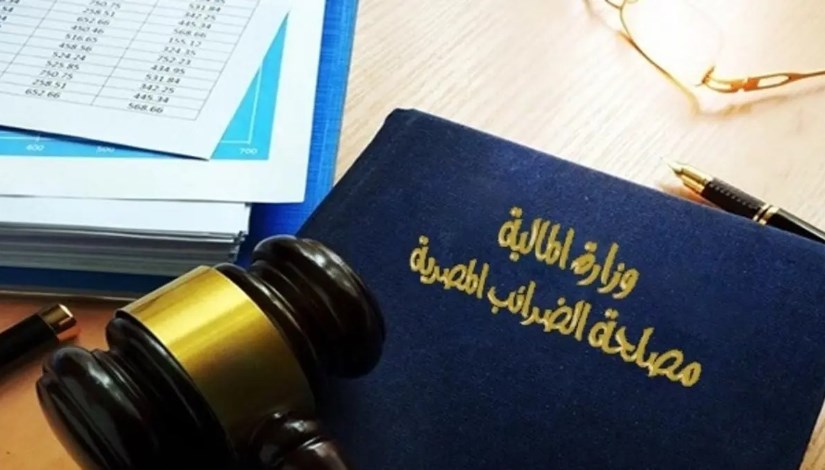 750.75 531.84
258.51 242.25
652.66 445.34
450.46 568.66
516.65 155.12
458.56 324.35
524.24 752.23
525.85 434.95
750.75 531.84
258.51 242.25
652.66 445.34
568.66
600
700
وزارة المالية
مصلحة الضرائب المصرية